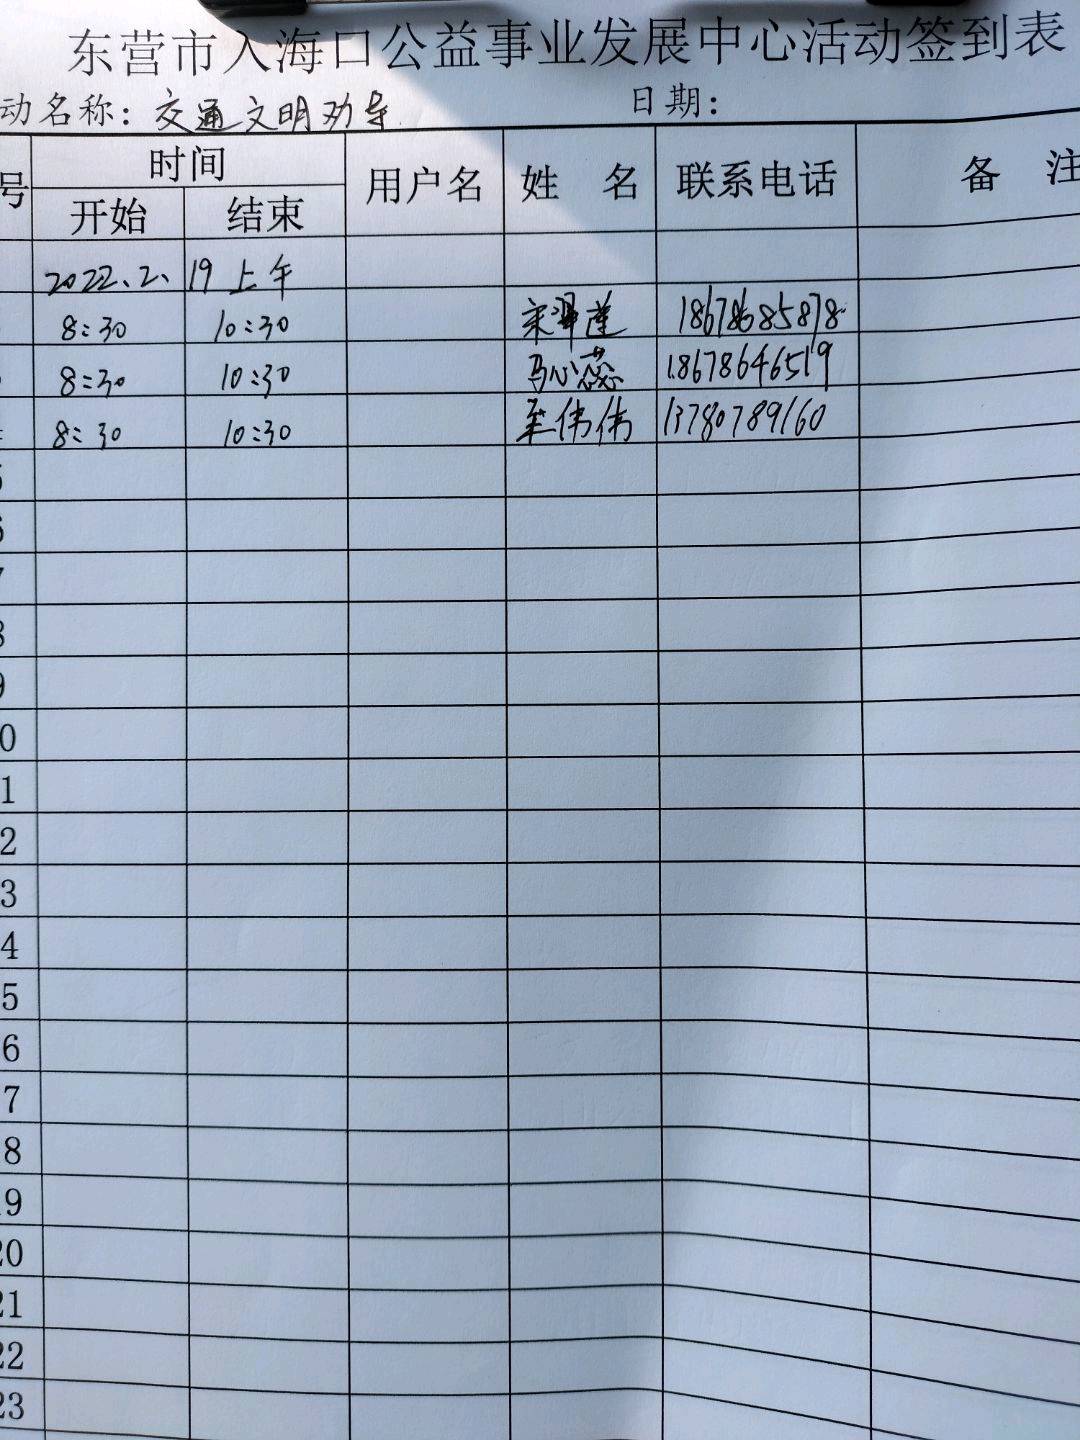 东营市入海口公益事业发展中心活动签到表
动名称：交通文明劝导 日期：
号 时间 用户名 姓 名 联系电话 备 注
开始 结束
2022、2、19 上午
8:30 10:30 宋翠莲 18678685878
8:30 10:30 马心蕊 18678646519
8:30 10:30 伟伟 13780789160
5
6
7
8
9
0
1
2
3
4
5
6
7
8
19
20
21
22
23